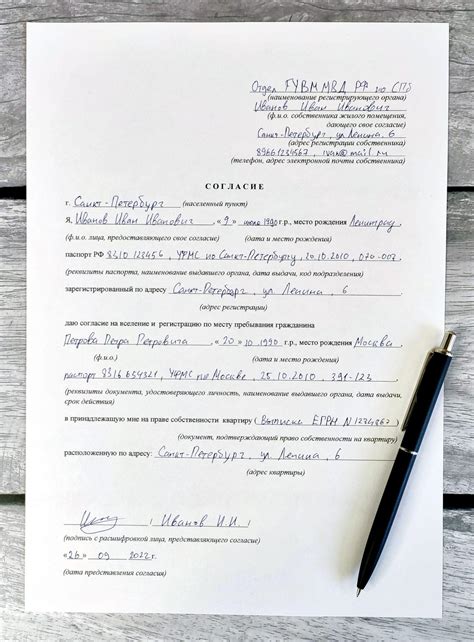 Отдел ГУВМ МВД РФ по СПб
(наименование регистрирующего органа)
Иванов Иван Иванович
(ф.и.о. собственника жилого помещения,
дающего свое согласие)
Санкт-Петербург, ул Ленина, 6
(адрес регистрации собственника)
89661234567, ivan@mail.ru
(телефон, адрес электронной почты собственника)
СОГЛАСИЕ
г. Санкт-Петербург (населенный пункт)
Я, Иванов Иван Иванович, «9» июля 1990 г.р., место рождения Ленинград,
(ф.и.о. лица, предоставляющего свое согласие) (дата и место рождения)
паспорт РФ 8310 123456, УФМС по Санкт-Петербургу, 20.10.2010, 070-007,
(реквизиты паспорта, наименование выдавшего органа, дата выдачи, код подразделения)
зарегистрированный по адресу Санкт-Петербург, ул. Ленина, 6
(адрес регистрации)
даю согласие на вселение и регистрацию по месту пребывания гражданина
Петрова Петра Петровича, «20» 10 1990 г.р., место рождения Москва,
(ф.и.о.) (дата и место рождения)
паспорт 8316 654321, УФМС по Москве, 25.10.2010, 391-123
(реквизиты документа, удостоверяющего личность, наименование выдавшего органа, дата выдачи,
срок действия)
в принадлежащую мне на праве собственности квартиру (Выписка ЕГРН N 1234567)
(документ, подтверждающий право собственности на квартиру)
расположенную по адресу: Санкт-Петербург, ул Ленина, 6
(адрес квартиры)
/ Иванов И.И. /
(подпись с расшифровкой лица, представляющего согласие)
«26» 09 2022 г.
(дата представления согласия)